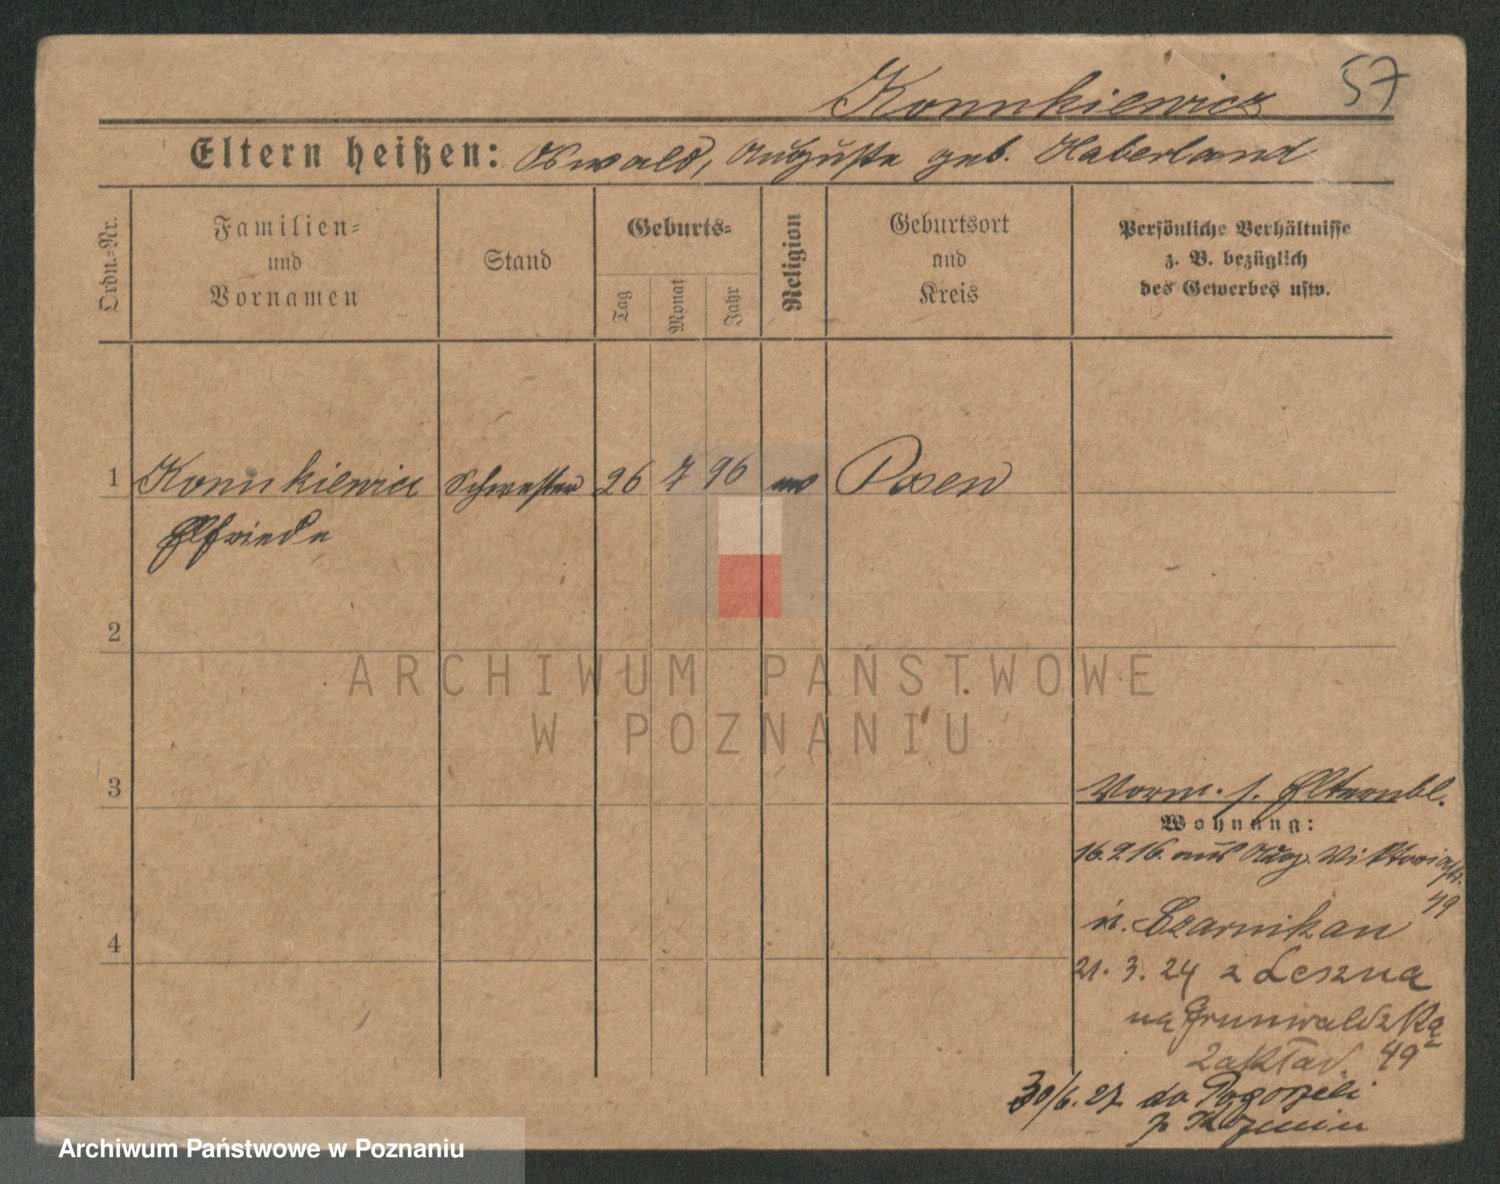 Konnkiewicz 57
Eltern heißen: Oswald, Auguste geb. Haberland
Ordn.-Nr.
Familien-
und
Vornamen
Stand
Geburts-
Tag
Monat
Jahr
Religion
Geburtsort
und
Kreis
Persönliche Verhältnisse
z. B. bezüglich
des Gewerbes usw.
1 Konnkiewicz Schwester 26 7 96 ev Posen
Elfriede
2
ARCHIWUM PAŃSTWOWE
W POZNANIU
3
Vorm. s. Elternbl.
Wohnung:
16.9.16. aus Aug. Viktoriastr.
49
n. Czarnikau
4
21. 3. 24 z Leszna
na Grunwaldzką
Zakład. 49
30/6. 27. do Pogorzeli
p. Koźmin
Archiwum Państwowe w Poznaniu